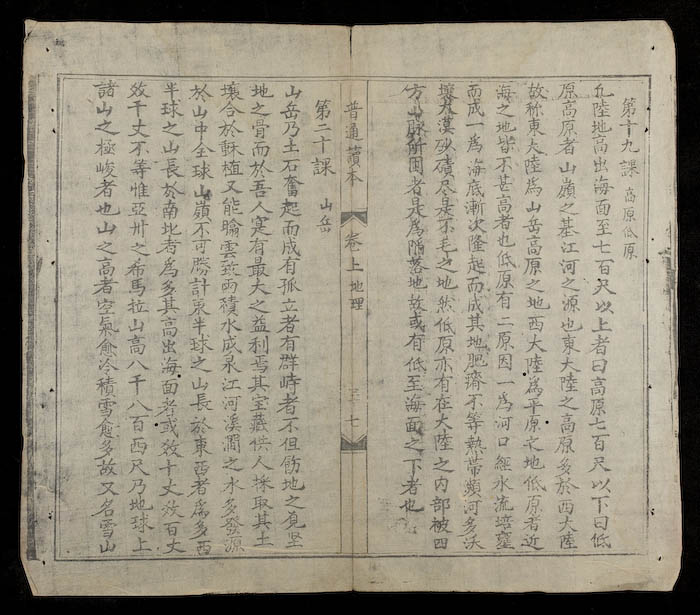 第十九課 高原低原
凡陸地高出海面至七百尺以上者曰高原七百尺以下曰低
原高原者山嶺之基江河之源也東大陸之高原多於西大陸
故称東大陸為山岳高原之地西大陸為平原之地低原者近
海之地皆不甚高者也低原有二原因一為河口經水流培壅
而成一為海底漸次隆起而成其地肥瘠不等熱帶瀕河多沃
壤大漠砂磧尽是不毛之地然低原亦有在大陸之內部被四
方山脉所困者是為陷落地故或有低至海面之下者也
普通讀本 卷上地理 七
第二十課 山岳
山岳乃土石奮起而成有孤立者有群峙者不但飭地之覓堅
地之骨而於吾人寔有最大之益利焉其宝藏供人採取其土
壤合於蘇植又能腀雲致雨積水成泉江河溪澗之水多發源
於山中全球山嶺不可勝計東半球之山長於東西者為多西
半球之山長於南北者為多其高出海面者或数十丈放百丈
效千丈不等惟亞卅之希馬拉山高八千八百西尺乃地球上
諸山之極峻者也山之高者空氣愈冷積雪愈多故又名雪山